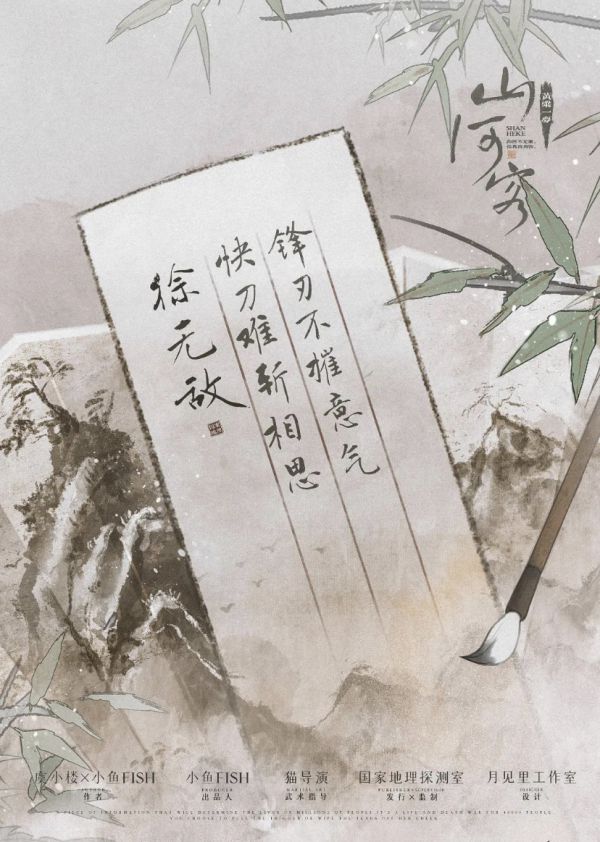 山河客
黄粱一梦
SHAN
HEKE
锋刃不摧意气
快刀难斩相思
徐无敌
小楼×小鱼FISH
作者
小鱼FISH
出品人
猫导演
武术指导
国家地理探测室
发行×监制
月见里工作室
设计
A PIECE OF INFORMATION THAT WILL DETERMINE THE LIVES OF MILLIONS OF PEOPLE IT'S A LIFE AND DEATH WAR FOR 40000 PEOPLE
YOU CHOOSE TO PULL THE TRIGGER OR WIPE THE TEARS OFF HER CHEEK